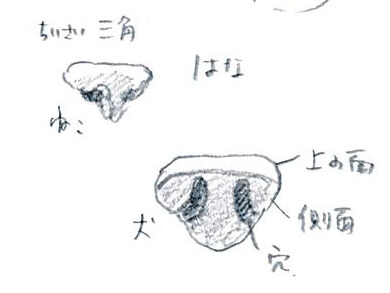 ちいさい三角
はな
ねこ
上の面
側面
犬
穴